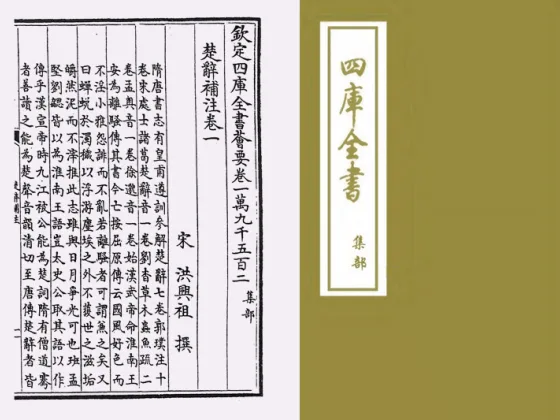 欽定四庫全書薈要卷一萬九千五百二 集部
楚辭補注卷一
宋 洪興祖 撰
隋唐書志有皇甫遵訓參解楚辭七卷郭璞注十
卷宋處士諸葛楚辭音一卷劉杳草木蟲魚疏二
卷孟奥音一卷徐邈音一卷始漢武帝命淮南王
安為離騷傳其書今亡按屈原傳云國風好色而
不淫小雅怨誹而不亂若離騷者可謂兼之矣又
曰蟬蛻於濁穢以浮游塵埃之外不獲世之滋垢
皭然泥而不滓推此志雖與日月爭光可也班孟
堅劉勰皆以為淮南王語豈太史公取其語以作
傳乎漢宣帝時九江被公能為楚詞隋有僧道騫
者善讀之能為楚聲音韻清切至唐傳楚辭者皆
四庫全書
集部